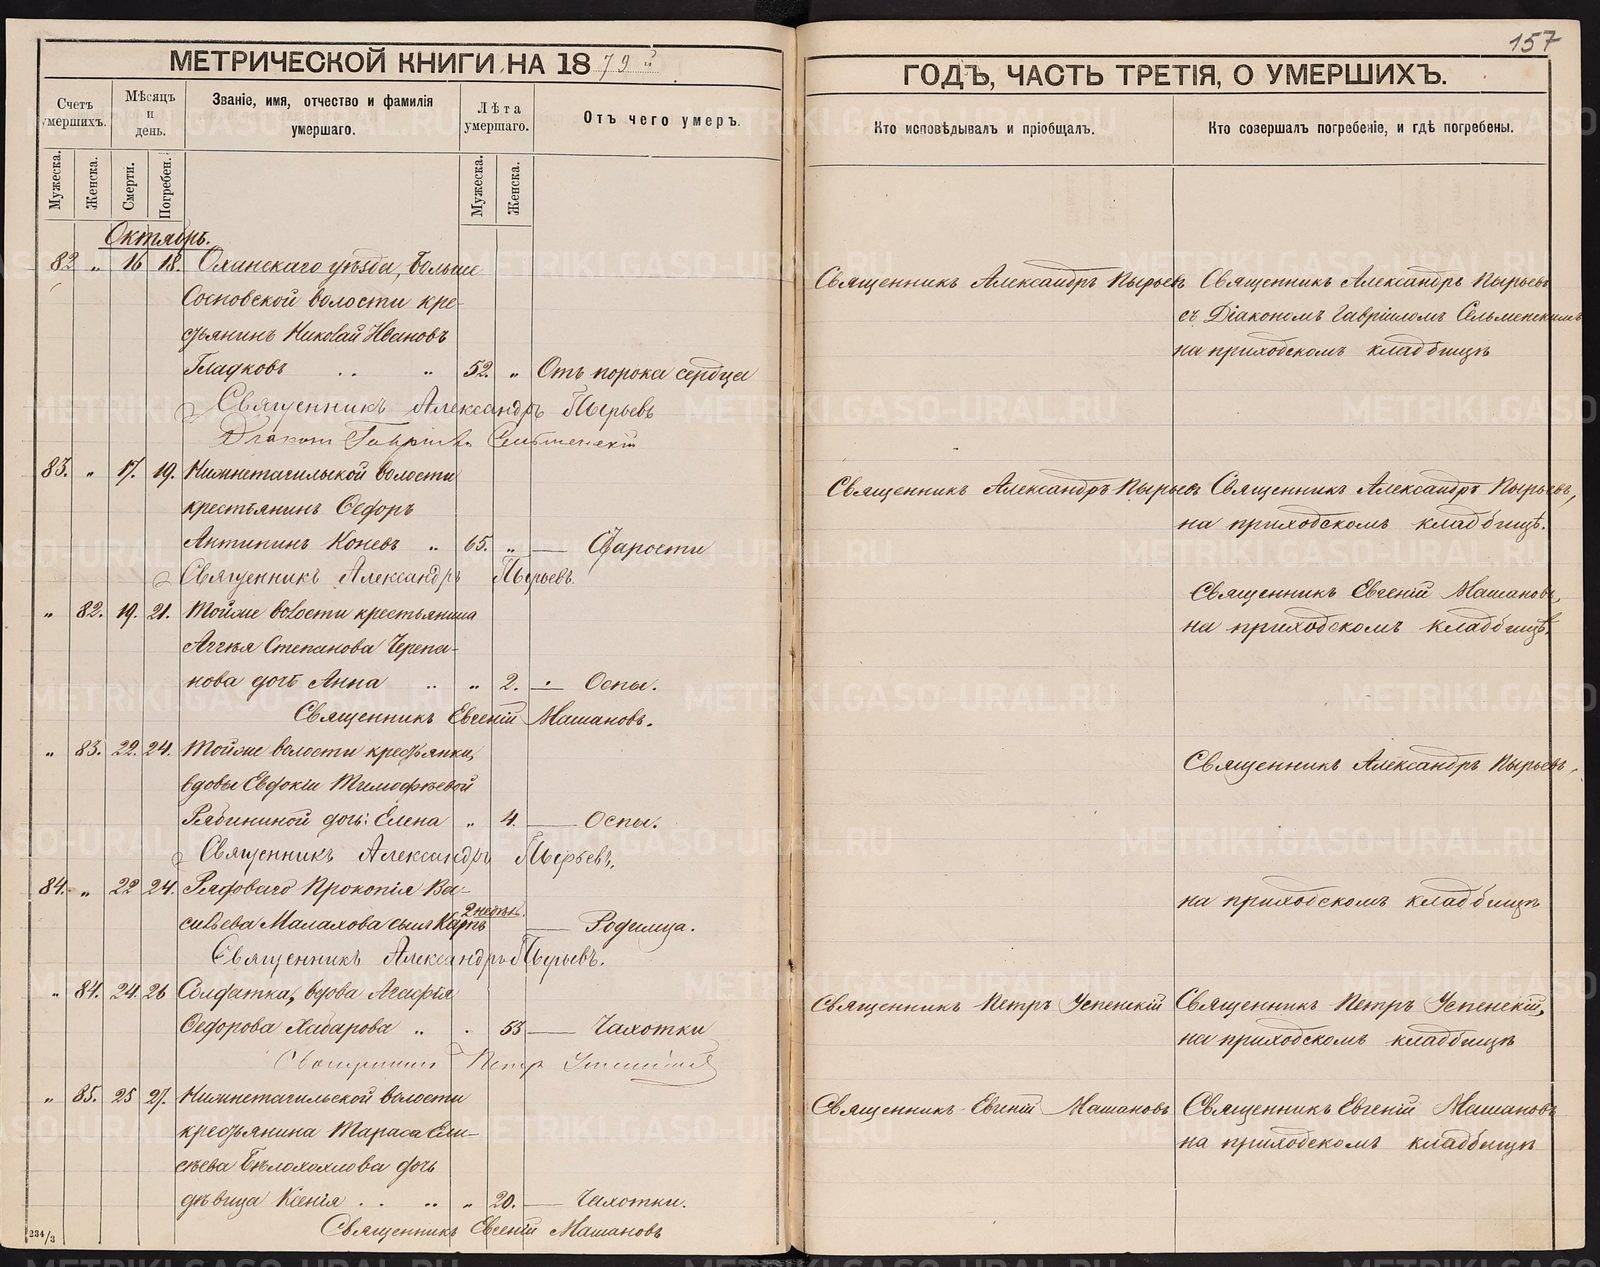 157
МЕТРИЧЕСКОЙ КНИГИ НА 1879й
ГОДЪ, ЧАСТЬ ТРЕТІЯ, О УМЕРШИХЪ.
Счетъ умершихъ.
Мѣсяцъ и день.
Званіе, имя, отчество и фамилія умершаго.
Лѣта умершаго.
Отъ чего умеръ.
Кто исповѣдывалъ и пріобщалъ.
Кто совершалъ погребеніе, и гдѣ погребены.
Мужеска.
Женска.
Смерти.
Погребен.
Мужеска.
Женска.
Октябрь.
82 „ 16 18. Оханскаго уѣзда, Больше
Сосновской волости кре-
стьянинъ Николай Ивановъ
Гладковъ . . „ 52. „ Отъ порока сердца
Священникъ Александръ Пырьевъ
Діаконъ Гавріилъ Сельменскій
Священникъ Александръ Пырьевъ
Священникъ Александръ Пырьевъ
съ Діакономъ Гавріиломъ Сельменскимъ
на приходскомъ кладбищѣ
83. „ 17. 19. Нижнетагильской волости
крестьянинъ Ѳедоръ
Антипинъ Коневъ „ 65. „ — Старости
Священникъ Александръ Пырьевъ.
Священникъ Александръ Пырьевъ
Священникъ Александръ Пырьевъ,
на приходскомъ кладбищѣ.
„ 82. 19. 21. Тойже волости крестьянина
Аггѣя Степанова Черепа-
нова дочь Анна .. „ 2. — Оспы.
Священникъ Евгеній Машановъ.
Священникъ Евгеній Машановъ,
на приходскомъ кладбищѣ.
„ 83. 22. 24. Тойже волости крестьянки,
вдовы Евдокіи Тимофѣевой
Рябининой дочь: Елена „ 4. — Оспы.
Священникъ Александръ Пырьевъ.
Священникъ Александръ Пырьевъ,
84. „ 22 24. Рядоваго Прокопія Ва-
сильева Малахова сынъ Карпъ 2 недѣль. — Родимца.
Священникъ Александръ Пырьевъ.
на приходскомъ кладбищѣ
„ 84. 24. 26 Солдатка, вдова Агафія
Ѳедорова Хабарова „ . 53 — Чахотки
Священникъ Петръ Успенскій
Священникъ Петръ Успенскій
Священникъ Петръ Успенскій,
на приходскомъ кладбищѣ
„ 85. 25 27. Нижнетагильской волости
крестьянина Тараса Ели-
сѣева Бѣлохохлова дочь
дѣвица Ксенія . . .. „ 20. — Чахотки.
Священникъ Евгеній Машановъ
Священникъ Евгеній Машановъ
Священникъ Евгеній Машановъ
на приходскомъ кладбищѣ
234/3
METRIKI.GASO-URAL.RU